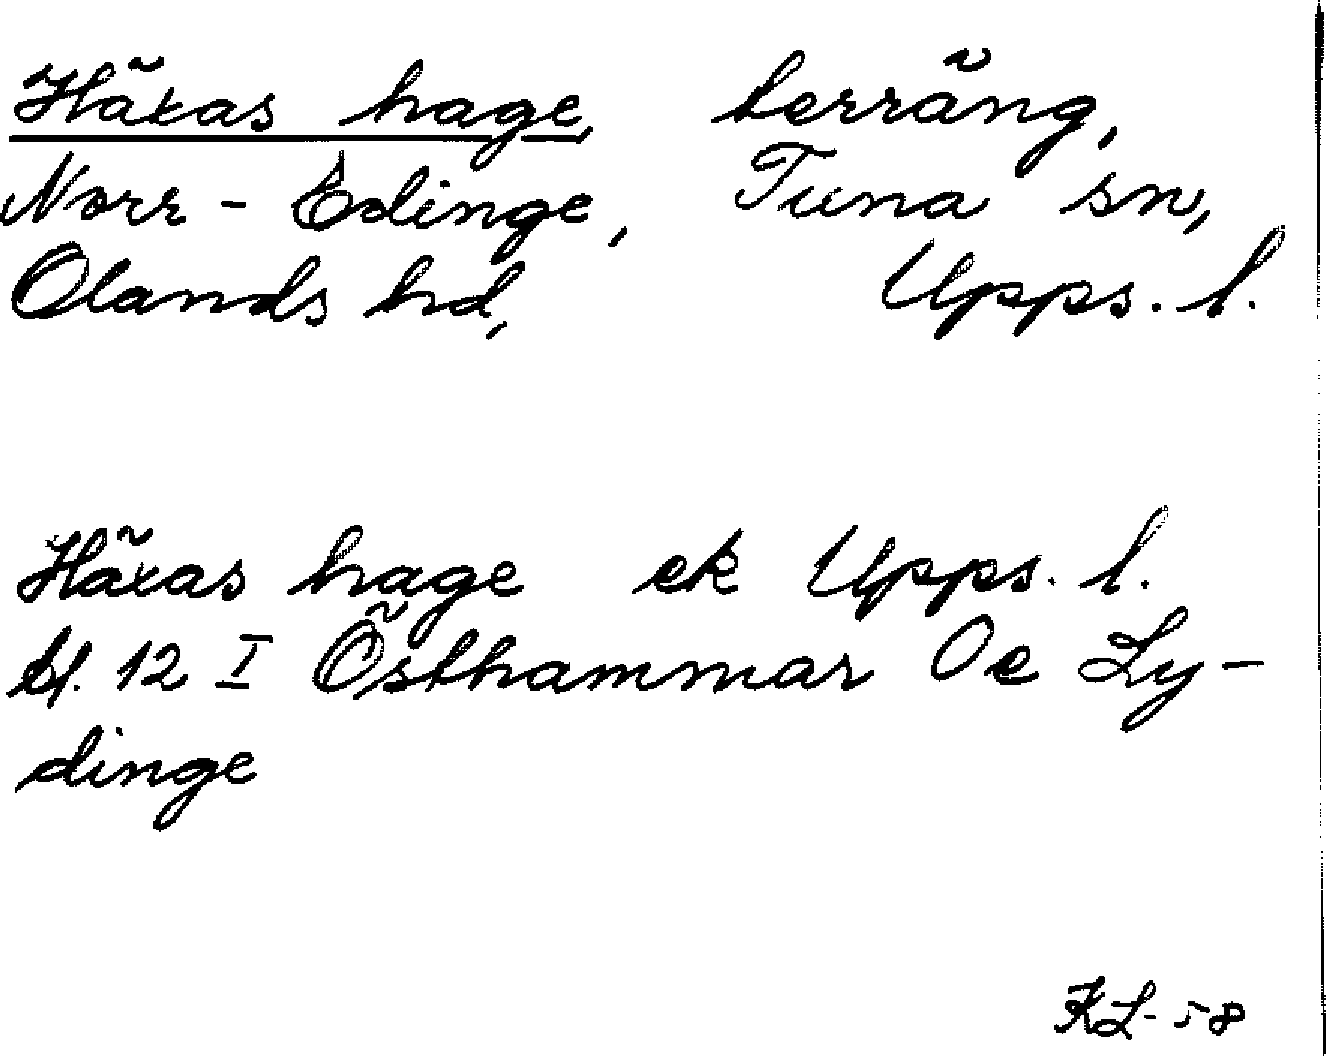 Häxas hage, terräng,
Norr-Edinge, Tuna sn,
Olands hd, Upps. l.
Häxas hage ek Upps. l.
bl. 12 I Östhammar Oe Ly-
dinge
KL-58